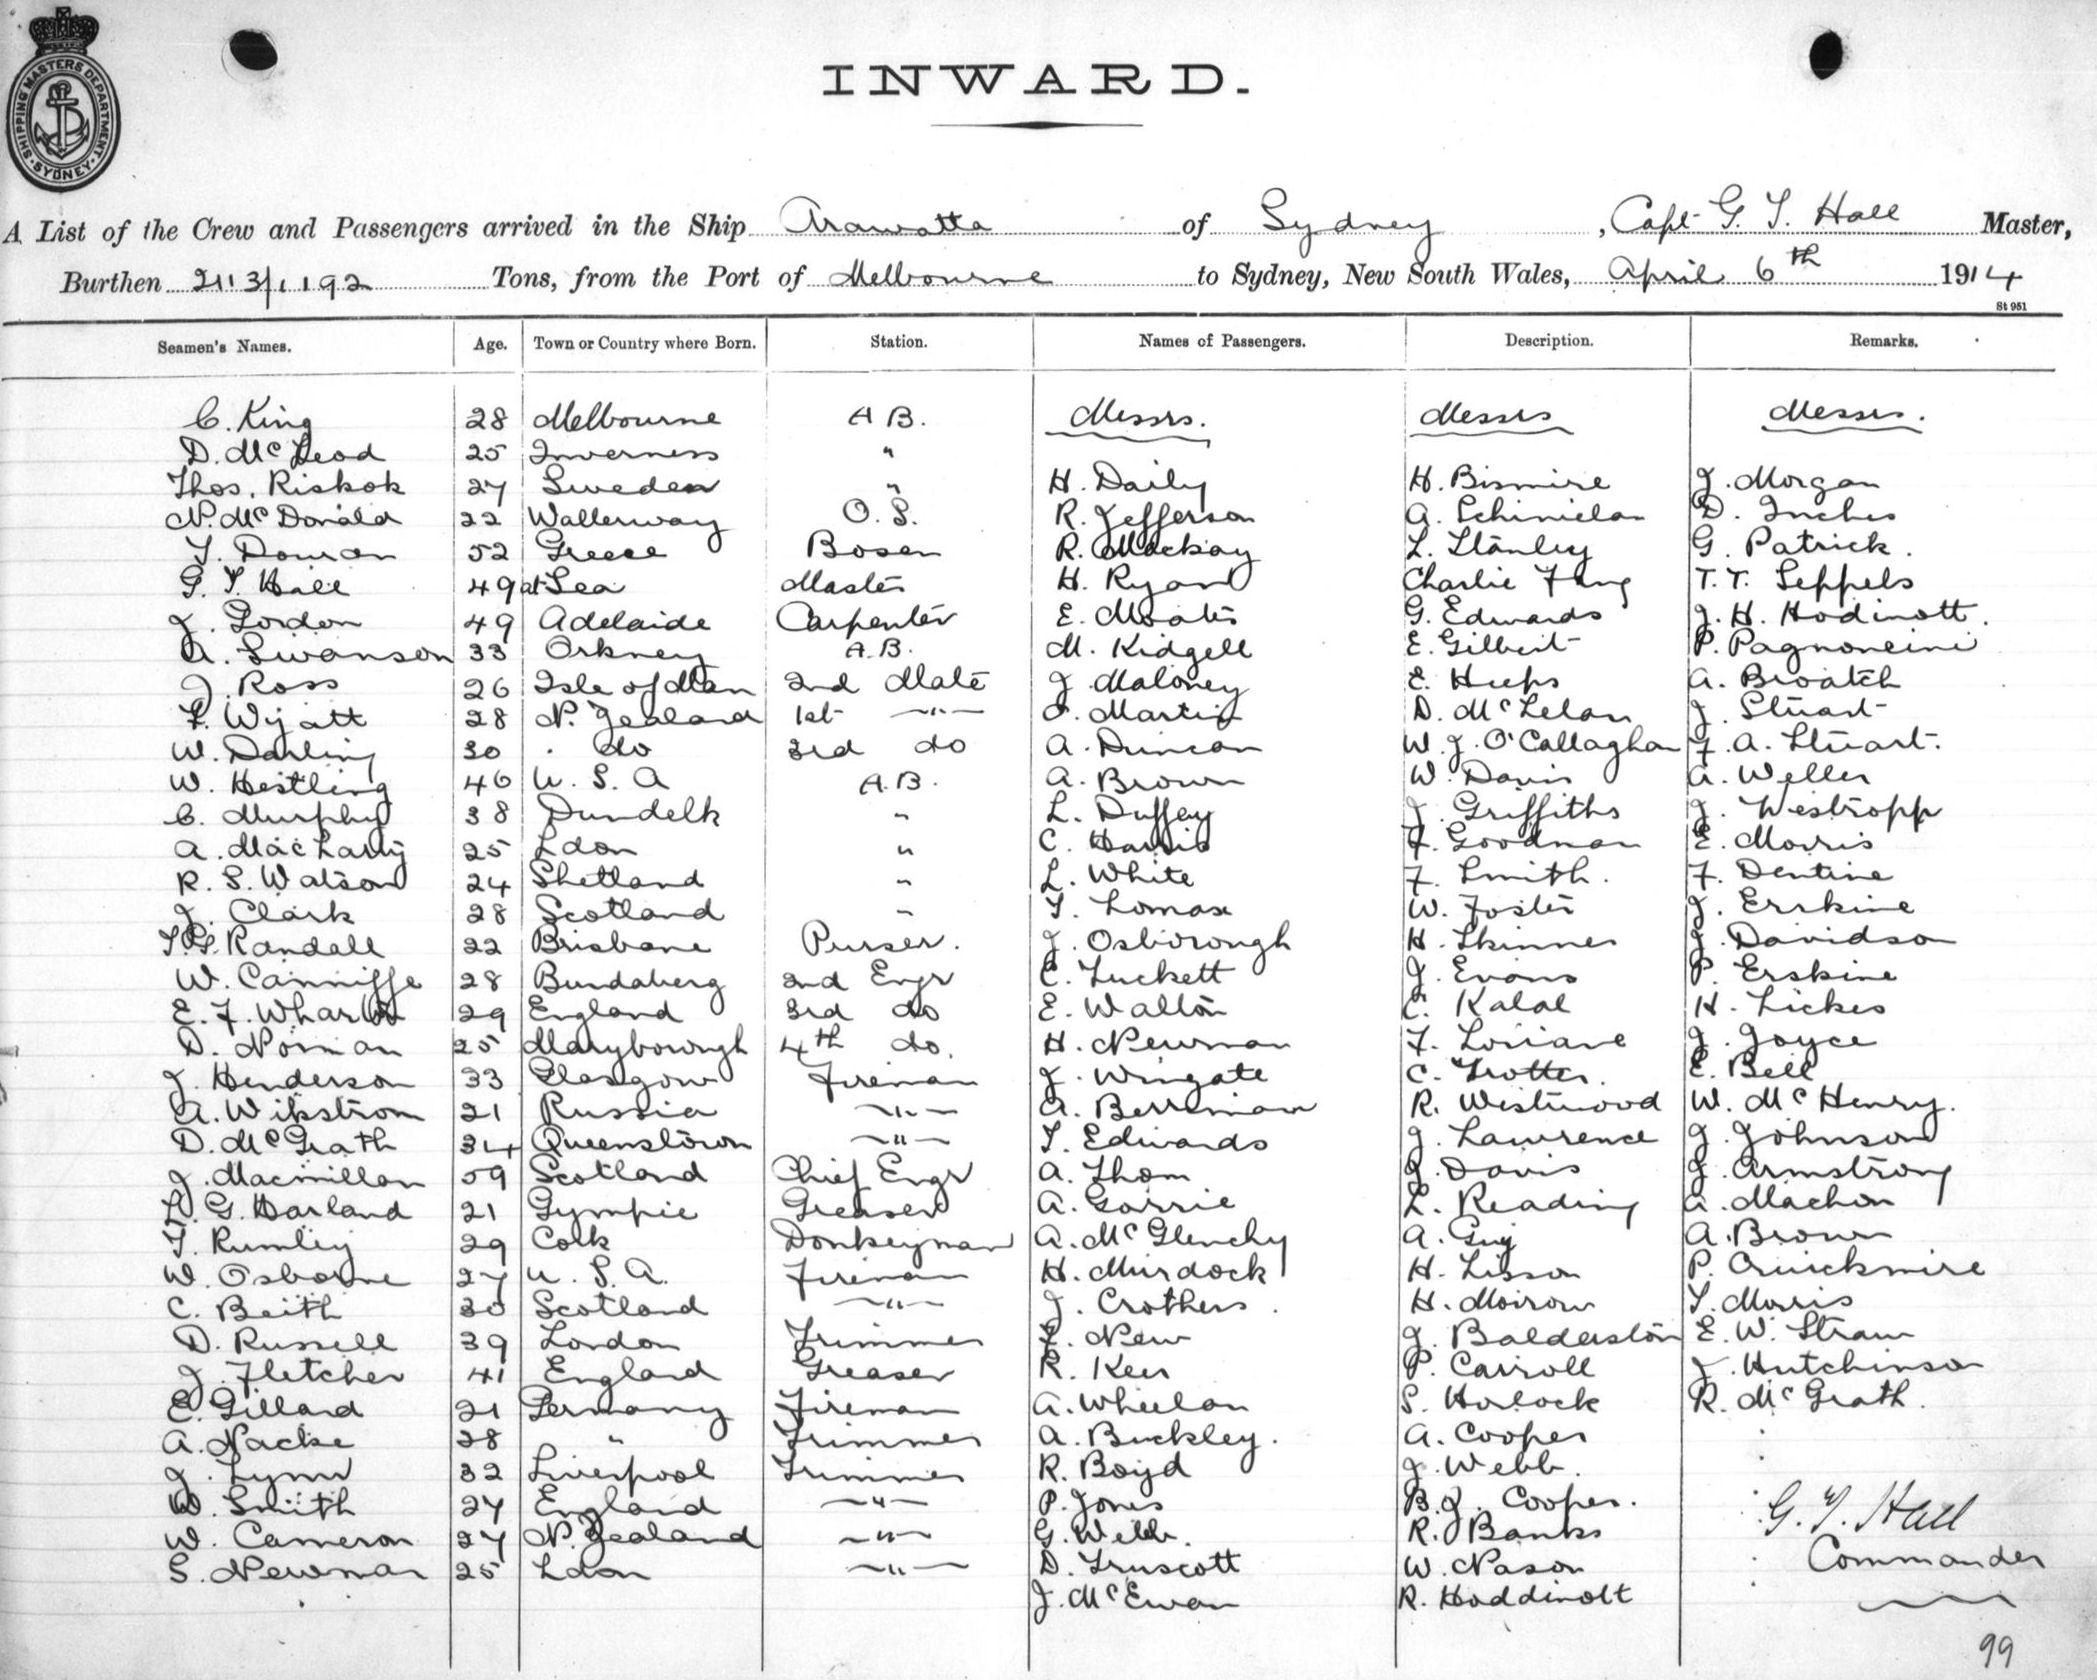 SHIPPING MASTERS DEPARTMENT · SYDNEY ·
INWARD.
A List of the Crew and Passengers arrived in the Ship Arawatta of Sydney, Capt G. T. Hall Master,
Burthen 2113/1192 Tons, from the Port of Melbourne to Sydney, New South Wales, April 6th 1914
St 951
Seamen's Names. Age. Town or Country where Born. Station. Names of Passengers. Description. Remarks.
C. King 28 Melbourne A B. Messrs. Messrs Messrs.
D. McLeod 25 Inverness "
Thos. Riskok 27 Sweden " H. Daily H. Bismire J. Morgan
N. McDonald 22 Wallerway O. S. R. Jefferson A. D. Inches
T. 52 Greece Bosen R. Mackay L. Stanley G. Patrick.
G. T. Hall 49 at Sea Master H. Ryan Charlie Fang T. T. Seppels
J. Gordon 49 Adelaide Carpenter E. Moates G. Edwards J. H. Hodinott.
A. Swanson 33 Orkney A.B. M. Kidgell E. Gilbert P. Pagnoncini
J. Ross 26 Isle of Man 2nd Mate J. Maloney E. Heeps A. Broatch
F. Wyatt 28 N. Zealand 1st —"— Martin D. McLelan J. Stuart
W. Darling 30 . do 3rd do A. Duncan W. J. O'Callaghan F. A. Stuart.
W. Hestling 46 U. S. A A.B. A. Brown W. Davis A. Weller
C. Murphy 38 Dundelk " L. Duffey J. Griffiths J. Westropp
A. MacLarty 25 Ldon " C. Harris F. Goodman E. Morris
R. S. Watson 24 Shetland " L. White F. Smith. F. Dentine
J. Clark 28 Scotland " T. Lomax W. Foster J. Erskine
Randell 22 Brisbane Purser. J. Osborough H. Skinner J. Davidson
W. Canniffe 28 Bundaberg 2nd Engr C. Luckett J. Evans P. Erskine
E. F. Wharton 29 England 3rd do E. Walton C. Kalal H. Lickes
D. Norman 25 Maryborough 4th do. H. Newman F. Loriane J. Joyce
J. Henderson 33 Glasgow Fireman J. Wingate C. Trotter. E. Bell
A. Wikstrom 21 Russia —"— A. Berriman R. Westwood W. McHenry.
D. McGrath 34 Queenstown —"— T. Edwards J. Lawrence J. Johnson
J. Macmillan 59 Scotland Chief Engr A. Thom J. Davis J. Armstrong
L. G. Harland 21 Gympie Greaser A. Gorrie L. Reading A. Machon
T. Rumley 29 Cork Donkeyman A. McGlenchy A. Guy A. Brown
W. Osborne 27 U. S. A. Fireman H. Murdock H. Lisson P. Cruickmire
C. Beith 30 Scotland —"— J. Crothers. H. Morrow T. Morris
D. Russell 39 London Trimmer L. New J. Balderston E. W. Straw
J. Fletcher 41 England Greaser R. Keer P. Carroll J. Hutchinson
E. Gillard 21 Germany Fireman A. Whelan S. Horlock R. McGrath.
A. Nacke 28 " Trimmer A. Buckley. A. Cooper
J. Lynn 32 Liverpool Trimmer R. Boyd J. Webb.
W. Smith 27 England —"— P. Jones B. J. Cooper.
W. Cameron 27 N. Zealand —"— G. Webb. R. Banks
S. Newman 25 Ldon —"— D. Truscott W. Nason
J. McEwan R. Hoddinott
G. T. Hall
Commander
99